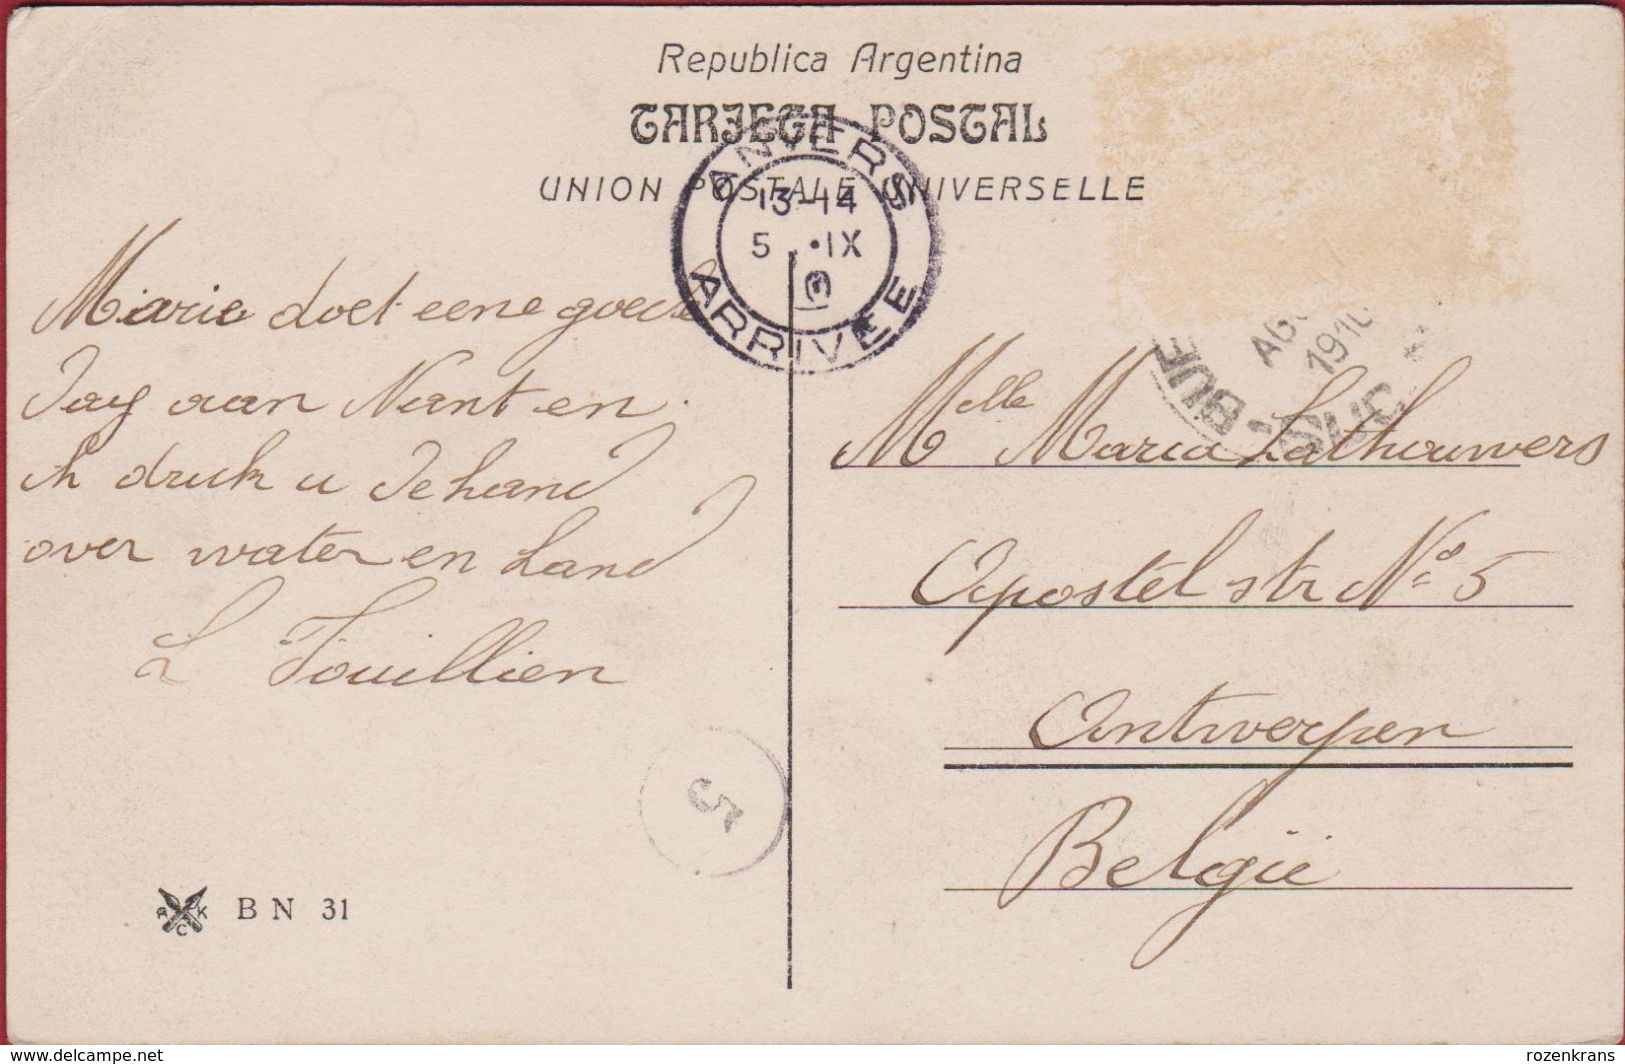 Republica Argentina
TARJETA POSTAL
UNION POSTALE UNIVERSELLE
ANVERS
13-14
5 • IX
ARRIVÉE
AGO
1910
BUE
Marie doet eene goede
dag aan Nant en
ik druk u de hand
over water en Land
L Fouillien
Melle Maria Lathouwers
Apostel str No 5
Antwerpen
België
5
A K
C
B N 31
www.delcampe.net
rozenkrans